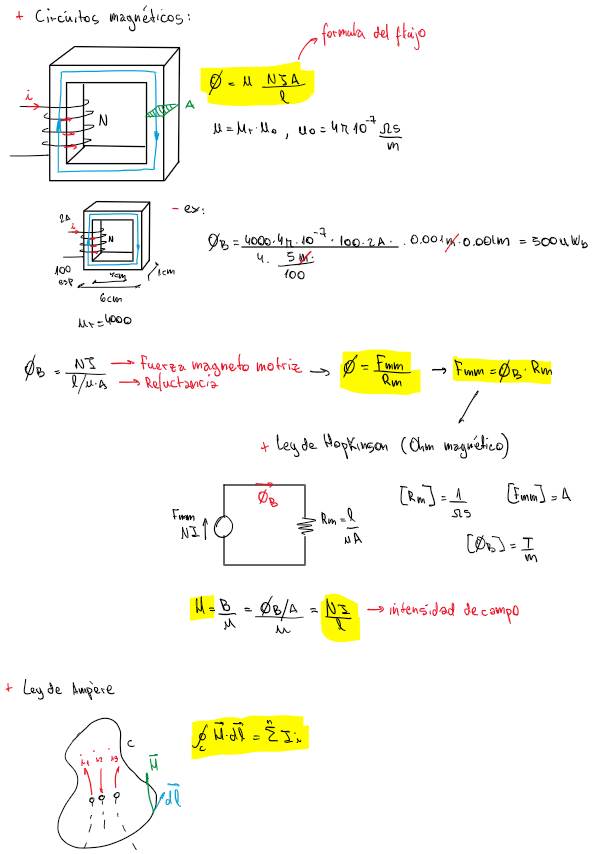 + Circuitos magnéticos:
formula del flujo
Ø = μ NIA / l
i
N
A
μ = μr · μ0 , μ0 = 4π 10^-7 Ωs/m
- ex:
2A
i
N
100 esp
4cm
1cm
6cm
μr = 4000
ØB = 4000 · 4π · 10^-7 · 100 · 2A · / 4 · 5m / 100 · 0.001m · 0.001m = 500 μWb
ØB = NI / l/μ·A → Fuerza magneto motriz → Reluctancia → Ø = Fmm / Rm → Fmm = ØB · Rm
+ Ley de Hopkinson (Ohm magnético)
ØB
Fmm
NI
Rm = l / μA
[Rm] = 1 / Ωs
[Fmm] = A
[ØB] = T / m
H = B / μ = ØB/A / μ = NI / l → intensidad de campo
+ Ley de Ampère
i1 i2 i3
C
H
dl
∮c H · dl = Σ^n Ii